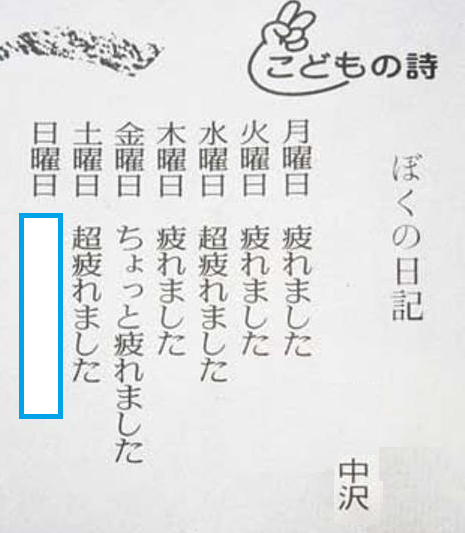 こどもの詩
ぼくの日記
中沢
月曜日 疲れました
火曜日 疲れました
水曜日 超疲れました
木曜日 疲れました
金曜日 ちょっと疲れました
土曜日 超疲れました
日曜日